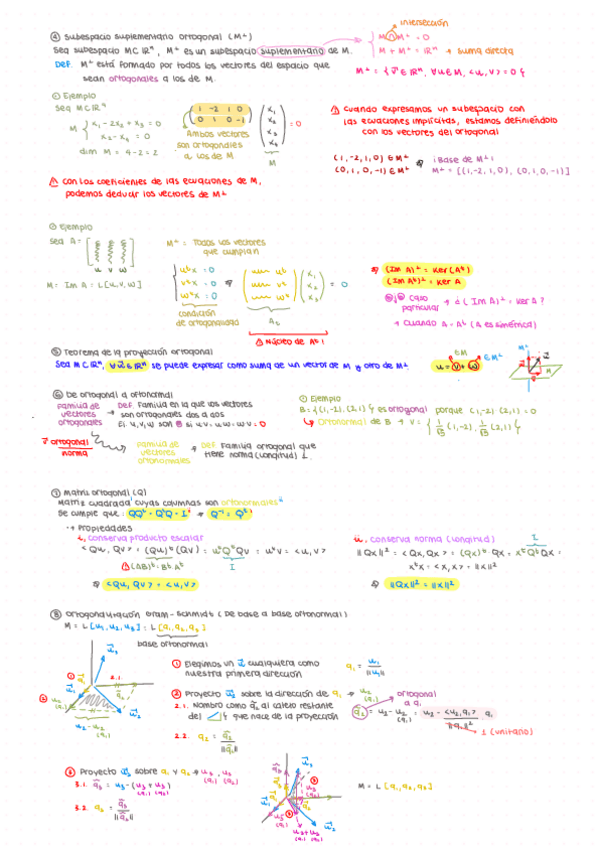 ④ Subespacio suplementario ortogonal (M⊥)
intersección
Sea subespacio M⊂ℝⁿ, M⊥ es un subespacio suplementario de M.
M∩M⊥ = 0
M + M⊥ = ℝⁿ → suma directa
Def. M⊥ está formado por todos los vectores del espacio que
sean ortogonales a los de M.
M⊥ = { v⃗ ∈ ℝⁿ, ∀u∈M, <u,v> = 0 }
① Ejemplo
Sea M⊂ℝⁿ
M { x₁ - 2x₂ + x₃ = 0
x₂ - x₄ = 0
dim M = 4-2 = 2
(1 -2 1 0
0 1 0 -1) (x₁ x₂ x₃ x₄) = 0
M
Ambos vectores
son ortogonales
a los de M
⚠ Cuando expresamos un subespacio con
las ecuaciones implícitas, estamos definiéndolo
con los vectores del ortogonal
(1,-2,1,0) ∈ M⊥
(0,1,0,-1) ∈ M⊥
¡Base de M⊥!
M⊥ = [(1,-2,1,0), (0,1,0,-1)]
⚠ Con los coeficientes de las ecuaciones de M,
podemos deducir los vectores de M⊥
② Ejemplo
Sea A =
u v w
M = Im A = L[u,v,w]
M⊥ = Todos los vectores
que cumplan
uᵗx = 0
vᵗx = 0
wᵗx = 0
condición
de ortogonalidad
uᵗ
vᵗ
wᵗ
(x₁ x₂ x₃) = 0
Aᵗ
⚠ ¡Núcleo de Aᵗ!
⇒ (Im A)⊥ = Ker(Aᵗ)
(Im Aᵗ)⊥ = Ker A
Caso
particular → ¿(Im A)⊥ = Ker A?
→ Cuando A = Aᵗ (A es simétrica)
⑤ Teorema de la proyección ortogonal
Sea M⊂ℝⁿ, ∀u⃗∈ℝⁿ se puede expresar como suma de un vector de M y otro de M⊥
u = v + w
∈M
∈M⊥
M⊥
M
⑥ De ortogonal a ortonormal
Familia de
vectores
ortogonales
→ Def. Familia en la que los vectores
son ortogonales dos a dos
Ej. u, v, w son si u·v = u·w = w·v = 0
v⃗ ortogonal
norma
Familia de
vectores
ortonormales
→ Def. Familia ortogonal que
tiene norma (longitud) 1.
① Ejemplo
B = {(1,-2), (2,1)} es ortogonal porque (1,-2)·(2,1) = 0
→ Ortonormal de B → V = { 1/√5 (1,-2), 1/√5 (2,1) }
⑦ Matriz ortogonal (Q)
Matriz cuadrada cuyas columnas son ortonormales
Se cumple que: QQᵗ = QᵗQ = I → Q⁻¹ = Qᵗ
→ Propiedades
i, conserva producto escalar
<Qu, Qv> = (Qu)ᵗ(Qv) = uᵗQᵗQv = uᵗv = <u,v>
⚠ (AB)ᵗ = BᵗAᵗ
I
⇒ <Qu, Qv> = <u,v>
ii, conserva norma (longitud)
I
||Qx||² = <Qx, Qx> = (Qx)ᵗ·Qx = xᵗQᵗQx =
xᵗx = <x,x> = ||x||²
⇒ ||Qx||² = ||x||²
⑧ Ortogonalización Gram-Schmidt (De base a base ortonormal)
M = L[u₁,u₂,u₃] = L[q₁,q₂,q₃]
base ortonormal
① Elegimos un u⃗ cualquiera como
nuestra primera dirección
q₁ = u₁/||u₁||
② Proyecto u⃗₂ sobre la dirección de q₁ → u₂(q₁)
2.1. Nombro como q̃₂ al cateto restante
del que nace de la proyección
ortogonal
a q₁
q̃₂ = u₂ - u₂(q₁) = u₂ - <u₂,q₁>/||q₁||² q₁
1 (unitario)
2.2. q₂ = q̃₂/||q̃₂||
2.1.
u₂ - u₂(q₁)
③ Proyecto u⃗₃ sobre q₁ y q₂ → u₃(q₁), u₃(q₂)
3.1. q̃₃ = u₃ - (u₃(q₁) + u₃(q₂))
3.2. q₃ = q̃₃/||q̃₃||
M = L[q₁,q₂,q₃]